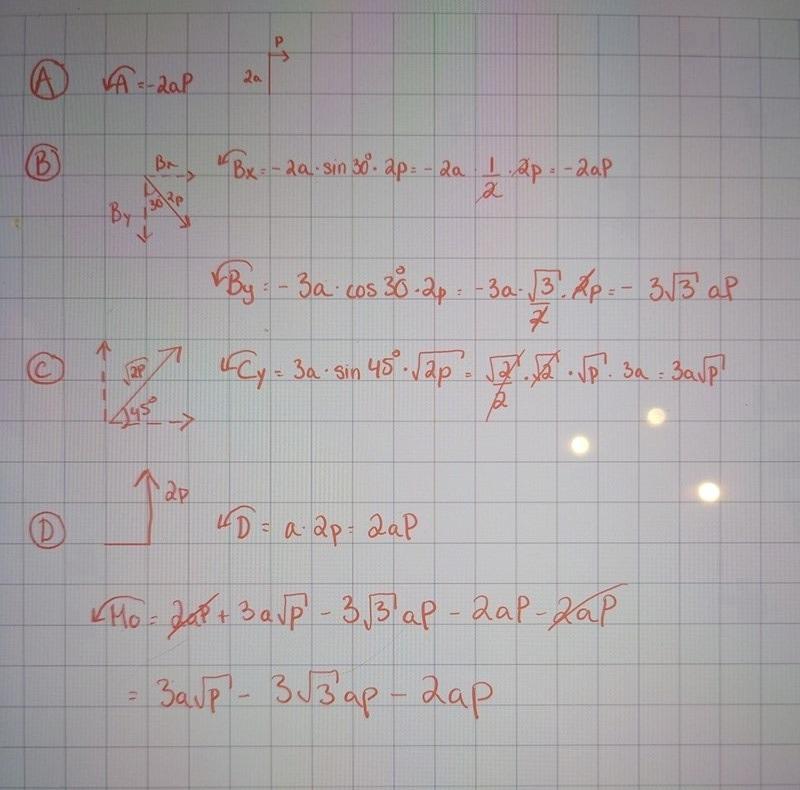 P
Ⓐ A = -2aP 2a
Ⓑ Bx Bx = -2a · sin 30° · 2p = -2a · 1/2 · 2p = -2aP
By 30 2p
By = -3a · cos 30° · 2p = -3a · √3/2 · 2p = - 3√3 aP
Ⓒ √2p 45° Cy = 3a · sin 45° · √2p = √2/2 · √2 · √p · 3a = 3a√p
2p
Ⓓ D = a · 2p = 2aP
Mo = 2aP + 3a√p - 3√3 aP - 2aP - 2aP
= 3a√p - 3√3 ap - 2aP